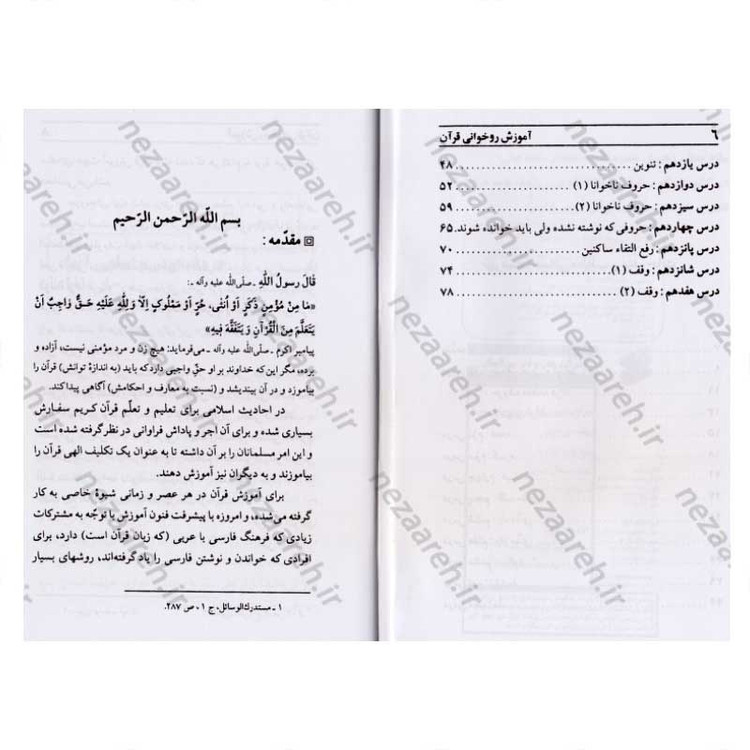 ۶ آموزش روخوانی قرآن
درس یازدهم : تنوین ........................ ۴۸
درس دوازدهم : حروف ناخوانا (۱) ........................ ۵۲
درس سیزدهم : حروف ناخوانا (۲) ........................ ۵۹
درس چهاردهم : حروفی که نوشته نشده ولی باید خوانده شوند. ۶۵
درس پانزدهم : رفع التقاء ساکنین ........................ ۷۰
درس شانزدهم : وقف (۱) ........................ ۷۴
درس هفدهم : وقف (۲) ........................ ۷۸
بسم اللّه الرّحمن الرّحیم
مقدّمه :
قالَ رسولُ اللّهِ ـ صلّی‌اللّه علیه وآله ـ:
«مَا مِنْ مُؤْمِنٍ ذَکَرٍ أَوْ أُنثَى، حُرٍّ أَوْ مَمْلُوکٍ إِلّا وَلِلّهِ عَلَيْهِ حَقٌّ وَاجِبٌ أَنْ
يَتَعَلَّمَ مِنَ الْقُرْآنِ وَ يَتَفَقَّهَ فِيهِ»
پیامبر اکرم ـ صلّی‌اللّه علیه وآله ـ می‌فرماید: هیچ زن و مرد مؤمنی نیست، آزاده و
برده، مگر این که خداوند بر او حقّ واجبی دارد که باید (به اندازهٔ توانش) قرآن را
بیاموزد و در آن بیندیشد و (نسبت به معارف و احکامش) آگاهی پیدا کند.
در احادیث اسلامی برای تعلیم و تعلّم قرآن کریم سفارش
بسیاری شده و برای آن اجر و پاداش فراوانی در نظر گرفته شده است
و این امر مسلمانان را بر آن داشته تا به عنوان یک تکلیف الهی قرآن را
بیاموزند و به دیگران نیز آموزش دهند.
برای آموزش قرآن در هر عصر و زمانی شیوهٔ خاصی به کار
گرفته می‌شده، و امروزه با پیشرفت فنون آموزش با توجّه به مشترکات
زیادی که فرهنگ فارسی با عربی (که زبان قرآن است) دارد، برای
افرادی که خواندن و نوشتن فارسی را یاد گرفته‌اند، روشهای بسیار
۱ ـ مستدرك‌الوسائل، ج ۱، ص ۲۸۷.
nezaareh.ir
nezaareh.ir
nezaareh.ir
nezaareh.ir
nezaareh.ir
nezaareh.ir
nezaareh.ir